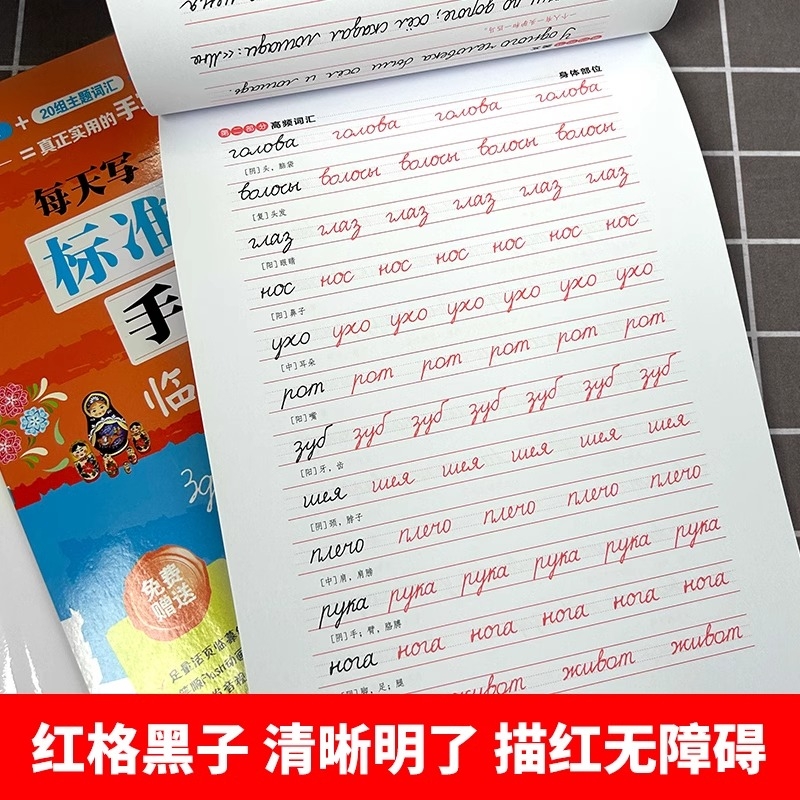 ни по дороге; осёл сказал лошади: «Мне
一个人有一头驴和一匹马。
У одного человека были осёл и лошадь.
第二部分 高频词汇
身体部位
голова голова голова голова
[阴]头，脑袋
волосы волосы волосы волосы волосы
[复]头发
глаз глаз глаз глаз глаз глаз
[阳]眼睛
нос нос нос нос нос нос нос
[阳]鼻子
ухо ухо ухо ухо ухо ухо ухо
[中]耳朵
рот рот рот рот рот рот
[阳]嘴
зуб зуб зуб зуб зуб зуб зуб
[阳]牙，齿
шея шея шея шея шея шея
[阴]颈，脖子
плечо плечо плечо плечо плечо
[中]肩，肩膀
рука рука рука рука рука рука
[阴]手；臂，胳膊
нога нога нога нога нога нога
[阴]脚，足；腿
живот живот
+ 20组主题词汇
= 真正实用的手
每天写一
标准
手
临
免费
赠送
足量活页临摹
笔顺Flash动画
红格黑子 清晰明了 描红无障碍